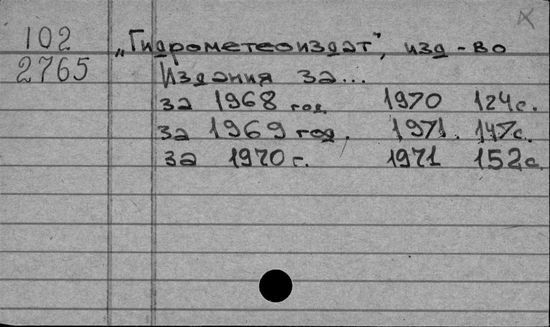 102 „Гидрометеоиздат", изд-во
2765 Издания за...
за 1968 год 1970 124с.
за 1969 год. 1971. 147с.
за 1970 г. 1971 152с.